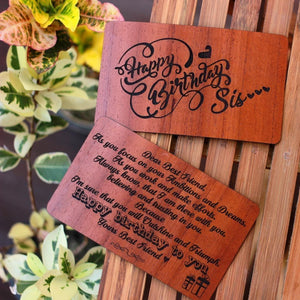 Happy
Birthday
Sis...
Dear Best Friend,
As you focus on your Ambitions and Dreams,
As you try and make efforts,
Always know, that I am here and
believing and rooting for you.
Because
I'm sure that you will Outshine and Triumph.
Happy birthday to you
Yours Best Friend